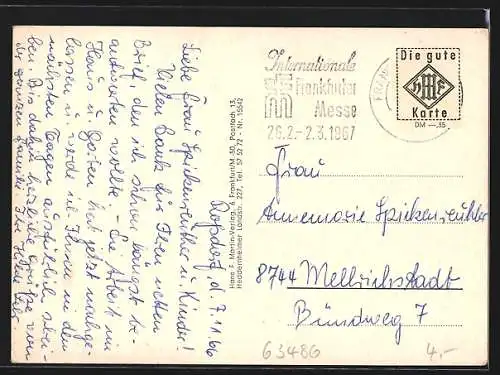 Roßdorf, d. 7.11.66
Liebe Frau Spickenreuther u. Kinder!
Vielen Dank für Ihren netten
Brief, den ich schon längst be-
antworten wollte. Die Arbeit im
Haus u. Garten hat jetzt nachge-
lassen u. werde ich Ihnen in den
nächsten Tagen ausführlich schrei-
ben. Bis dahin herzliche Grüße von
der ganzen Familie. Ihre
Hans F. Martin-Verlag, 6 Frankfurt/M 50, Postfach 13,
Heddernheimer Landstr. 227, Tel. 57 52 72 - Nr. 15642
Internationale
Frankfurter
Messe
26.2.-2.3.1967
Die gute
HMF
Karte
DM -.15
Frau
Annemarie Spickenreuther
8744 Mellrichstadt
Bündweg 7
63486
4.-